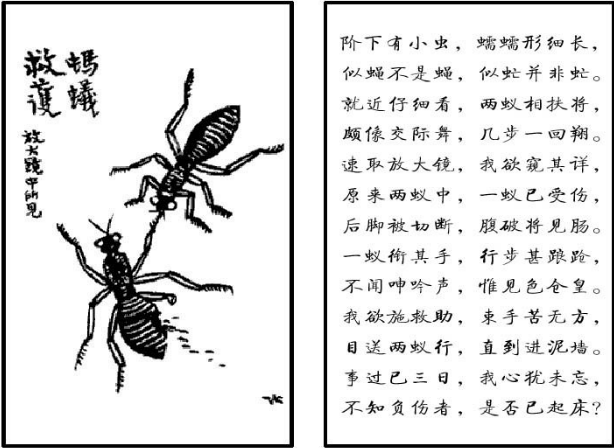 螞蟻
救護
放大鏡中所見
阶下有小虫，蠕蠕形细长，
似蝇不是蝇，似虻并非虻。
就近仔细看，两蚁相扶将，
颇像交际舞，几步一回翔。
速取放大镜，我欲窥其详，
原来两蚁中，一蚁已受伤，
后脚被切断，腹破将见肠。
一蚁衔其手，行步甚踉跄，
不闻呻吟声，惟见色仓皇。
我欲施救助，束手苦无方，
目送两蚁行，直到进泥墙。
事过已三日，我心犹未忘，
不知负伤者，是否已起床？